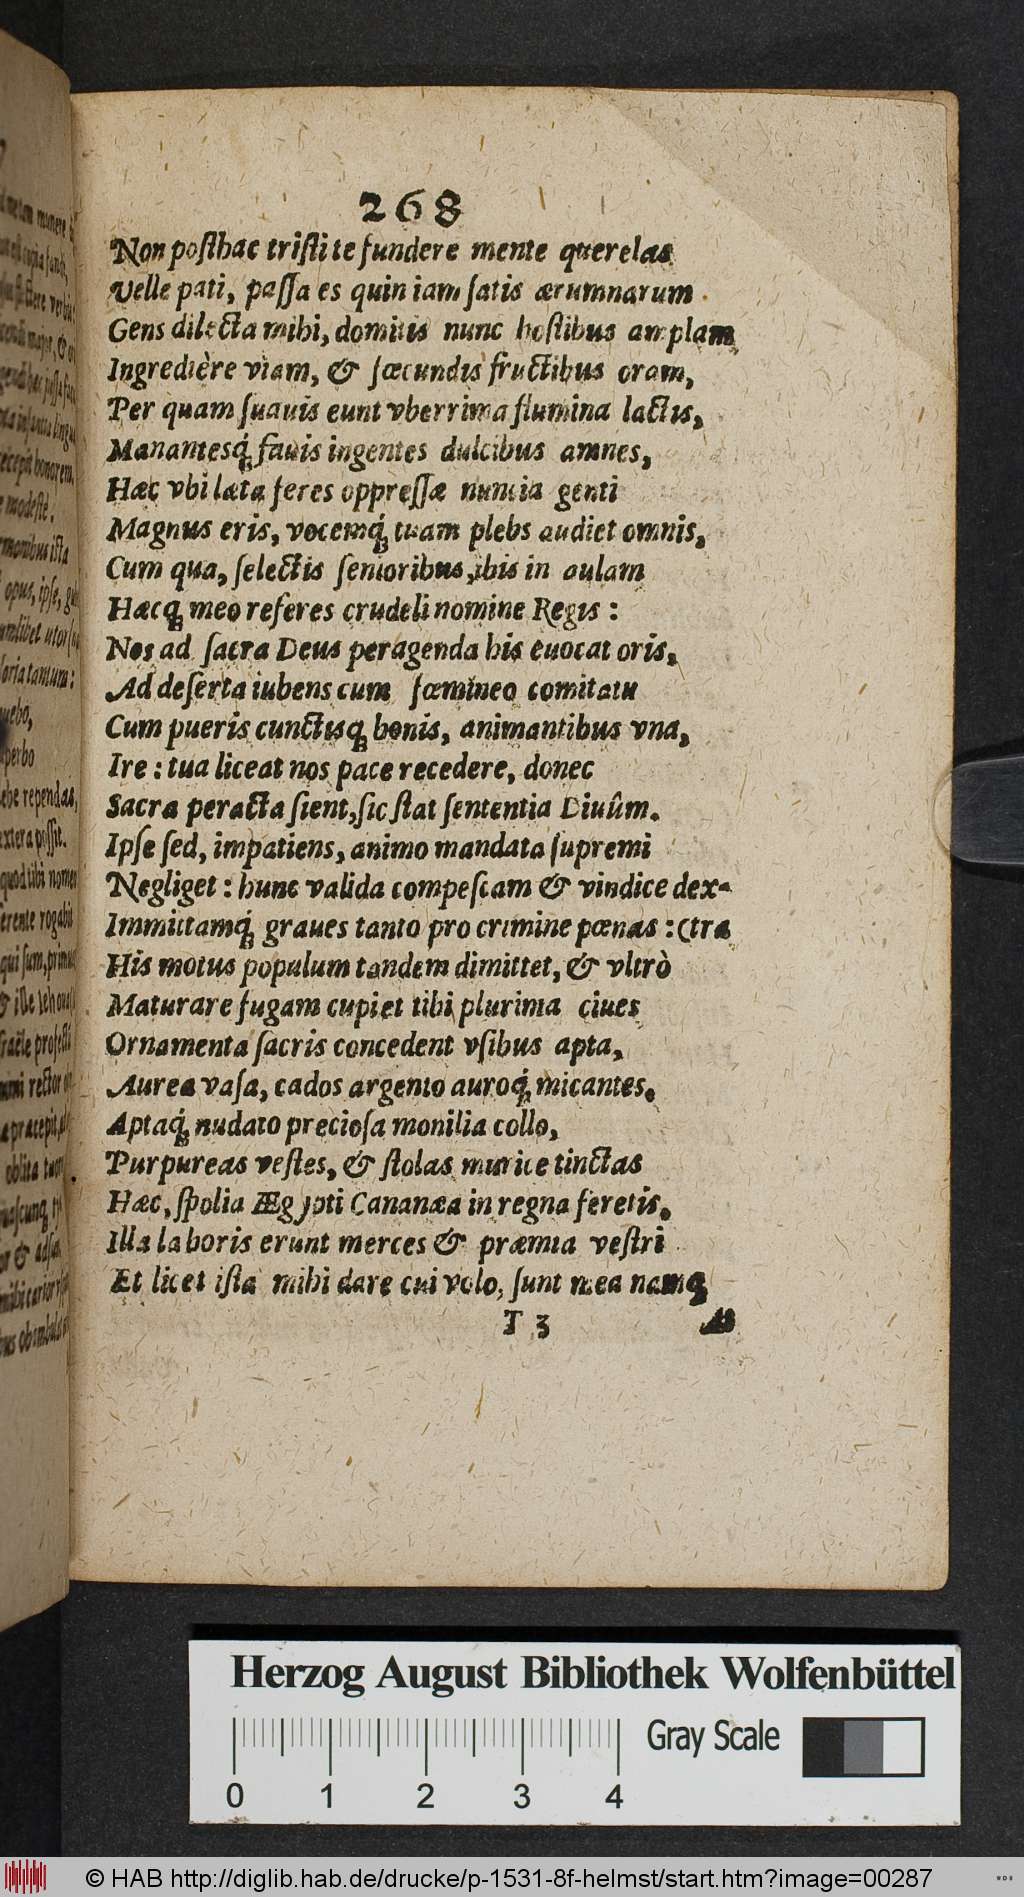 268
Non posthac tristi te fundere mente querelas
Velle pati, passa es quin iam satis ærumnarum
Gens dilecta mihi, domitis nunc hostibus amplam
Ingredière viam, & fœcundis fructibus oram,
Per quam suauis eunt vberrima flumina lactis,
Manantesq́; fauis ingentes dulcibus amnes,
Hæc vbi læta feres oppressæ nuncia genti
Magnus eris, vocemq́; tuam plebs audiet omnis,
Cum qua, selectis senioribus, ibis in aulam
Hæcq; meo referes crudeli nomine Regis :
Nos ad sacra Deus peragenda his euocat oris,
Ad deserta iubens cum fœmineo comitatu
Cum pueris cunctisq; bonis, animantibus vna,
Ire : tua liceat nos pace recedere, donec
Sacra peracta sient, sic stat sententia Diuûm.
Ipse sed, impatiens, animo mandata supremi
Negliget : hunc valida compescam & vindice dex-
Immittamq́; graues tanto pro crimine pœnas : (tra
His motus populum tandem dimittet, & vltrò
Maturare fugam cupiet tibi plurima ciues
Ornamenta sacris concedent vsibus apta,
Aurea vasa, cados argento auroq́; micantes.
Aptaq́; nudato preciosa monilia collo,
Purpureas vestes, & stolas murice tinctas
Hæc, spolia Ægypti Cananæa in regna feretis.
Illa laboris erunt merces & præmia vestri
Et licet ista mihi dare cui volo, sunt mea namq;
T 3
Herzog August Bibliothek Wolfenbüttel
Gray Scale
0 1 2 3 4
© HAB http://diglib.hab.de/drucke/p-1531-8f-helmst/start.htm?image=00287